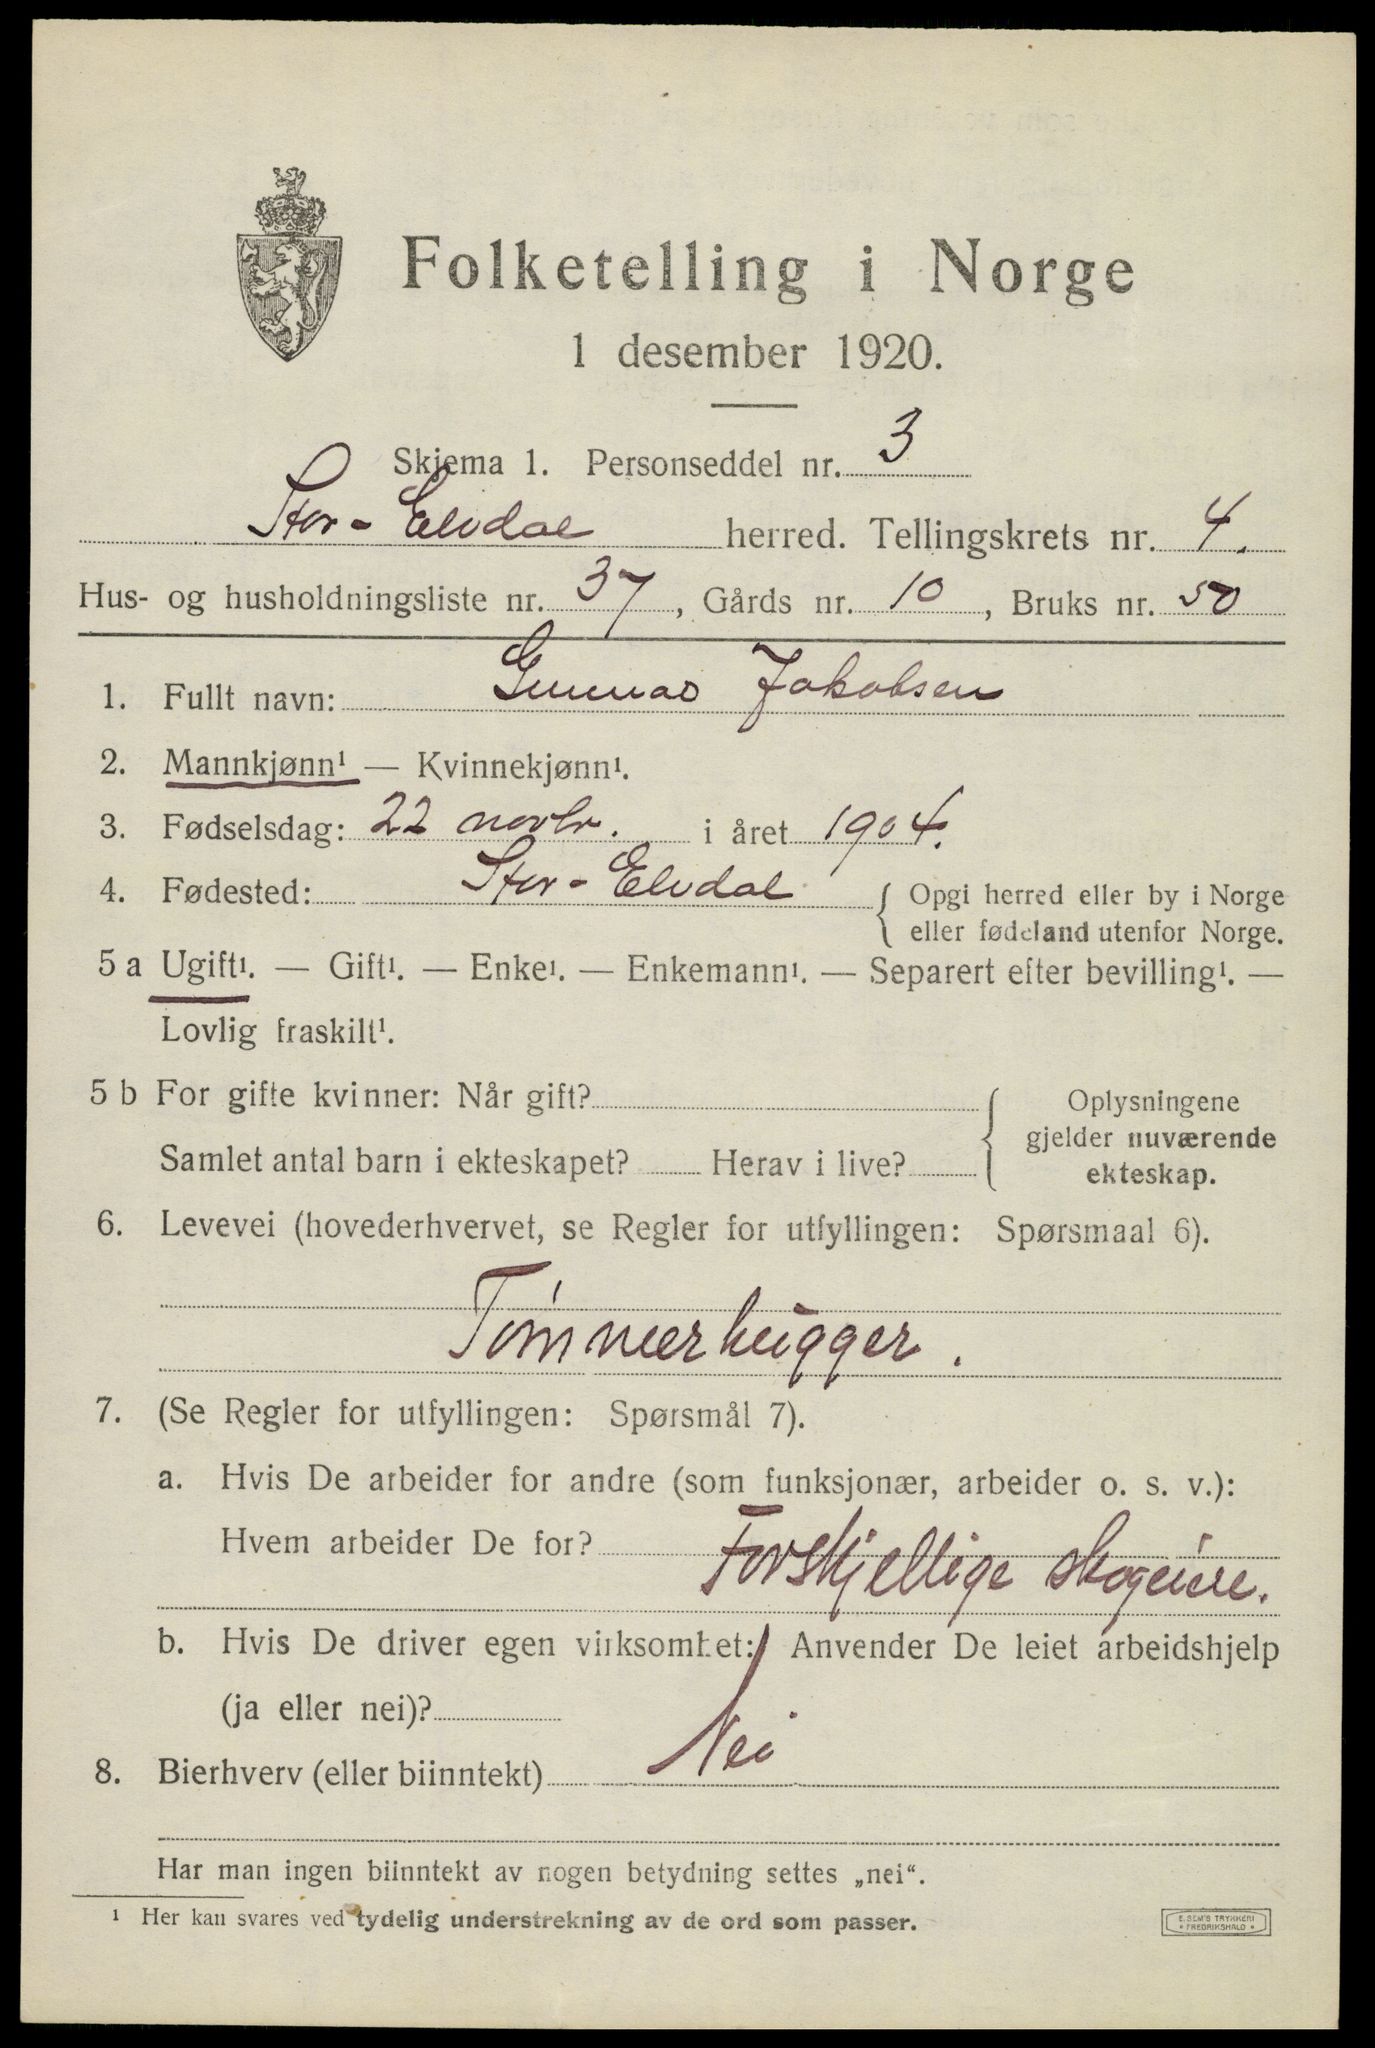 Folketelling i Norge
1 desember 1920.
Skjema 1. Personseddel nr. 3
Stor-Elvdal herred. Tellingskrets nr. 4.
Hus- og husholdningsliste nr. 37, Gårds nr. 10, Bruks nr. 50
1. Fullt navn: Gunnar Jakobsen
2. Mannkjønn¹ — Kvinnekjønn¹.
3. Fødselsdag: 22 novbr. i året 1904.
4. Fødested: Stor-Elvdal { Opgi herred eller by i Norge
eller fødeland utenfor Norge.
5 a Ugift¹. — Gift¹. — Enke¹. — Enkemann¹. — Separert efter bevilling¹. —
Lovlig fraskilt¹.
5 b For gifte kvinner: Når gift? { Oplysningene
gjelder nuværende
Samlet antal barn i ekteskapet? Herav i live? ekteskap.
6. Levevei (hovederhvervet, se Regler for utfyllingen: Spørsmaal 6).
Tømmerhugger.
7. (Se Regler for utfyllingen: Spørsmål 7).
a. Hvis De arbeider for andre (som funksjonær, arbeider o. s. v.):
Hvem arbeider De for? Forskjellige skogeiere.
b. Hvis De driver egen virksomhet: Anvender De leiet arbeidshjelp
(ja eller nei)?
8. Bierhverv (eller biinntekt) Nei
Har man ingen biinntekt av nogen betydning settes „nei“.
¹ Her kan svares ved tydelig understrekning av de ord som passer.
E. SEM'S TRYKKERI
• FREDRIKSHALD •